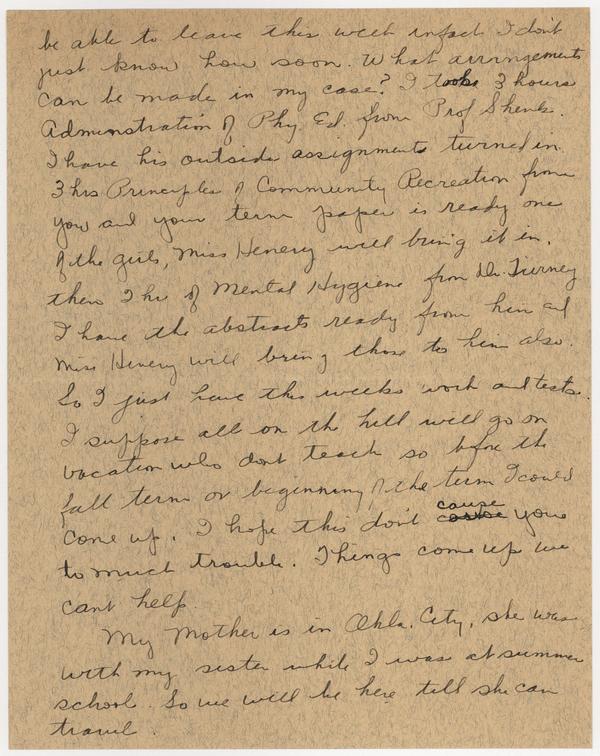 be able to leave this week infact I don't
just know how soon. What arringements
can be made in my case? I took 3 hours
Adminstration of Phy. Ed. from Prof Shenk.
I have his outside assignments turned in.
3 hrs Principles of Community Recreation from
you and your term paper is ready one
of the girls, Miss Henery will bring it in.
then 2 hr of Mental Hygiene from Dr. Turney
I have the abstracts ready from him and
Miss Henery will bring those to him also.
So I just have this weeks work and tests.
I suppose all on the hill will go on
vacation who dont teach so before the
fall term or beginning of the term I could
come up. I hope this don't cause you
to much trouble. Things come up we
cant help.
My Mother is in Okla. City, she was
with my sister while I was at summer
school. So we will be here till she can
travel.